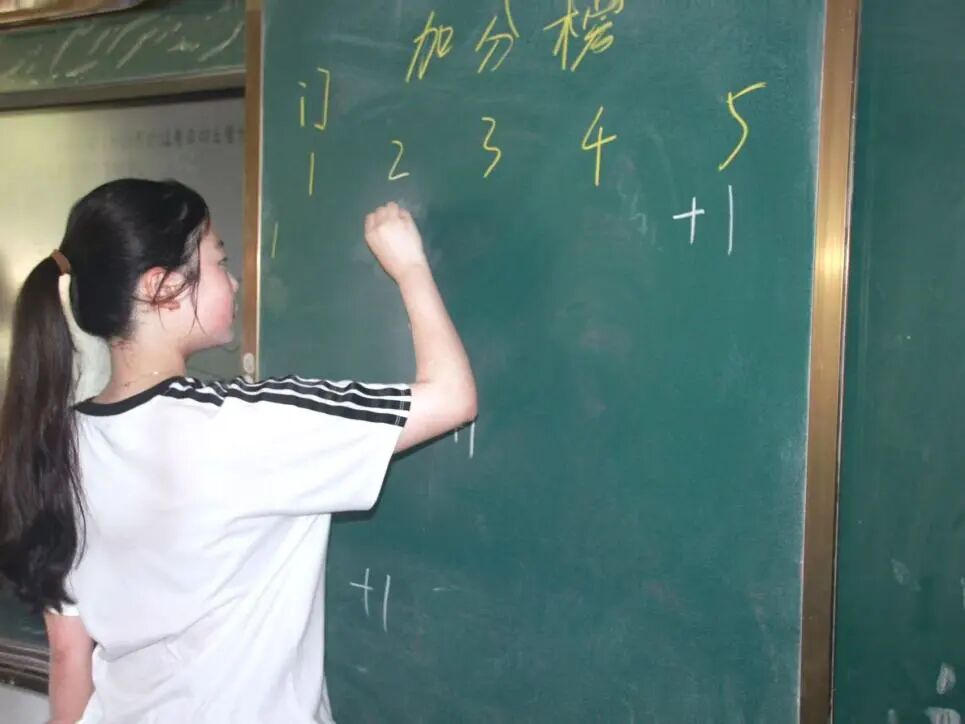 加分榜
门
1 2 3 4 5
+1
1
+1
+1